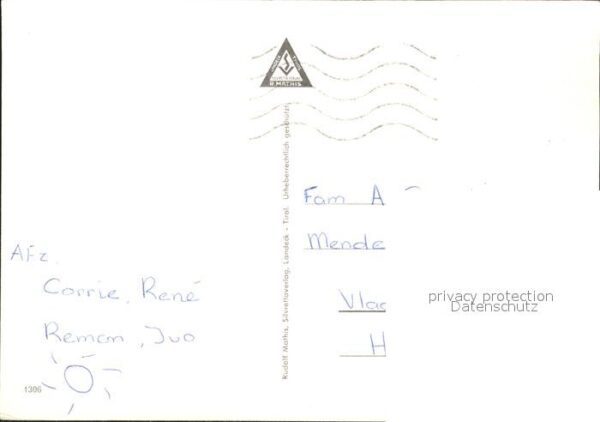 R MATHIS
Rudolf Mathis, Silvrettaverlag, Landeck - Tirol. Urheberrechtlich geschützt
Fam A
Mende
Vla
H
privacy protection
Datenschutz
Afz.
Corrie, René
Remon, Ivo
1306